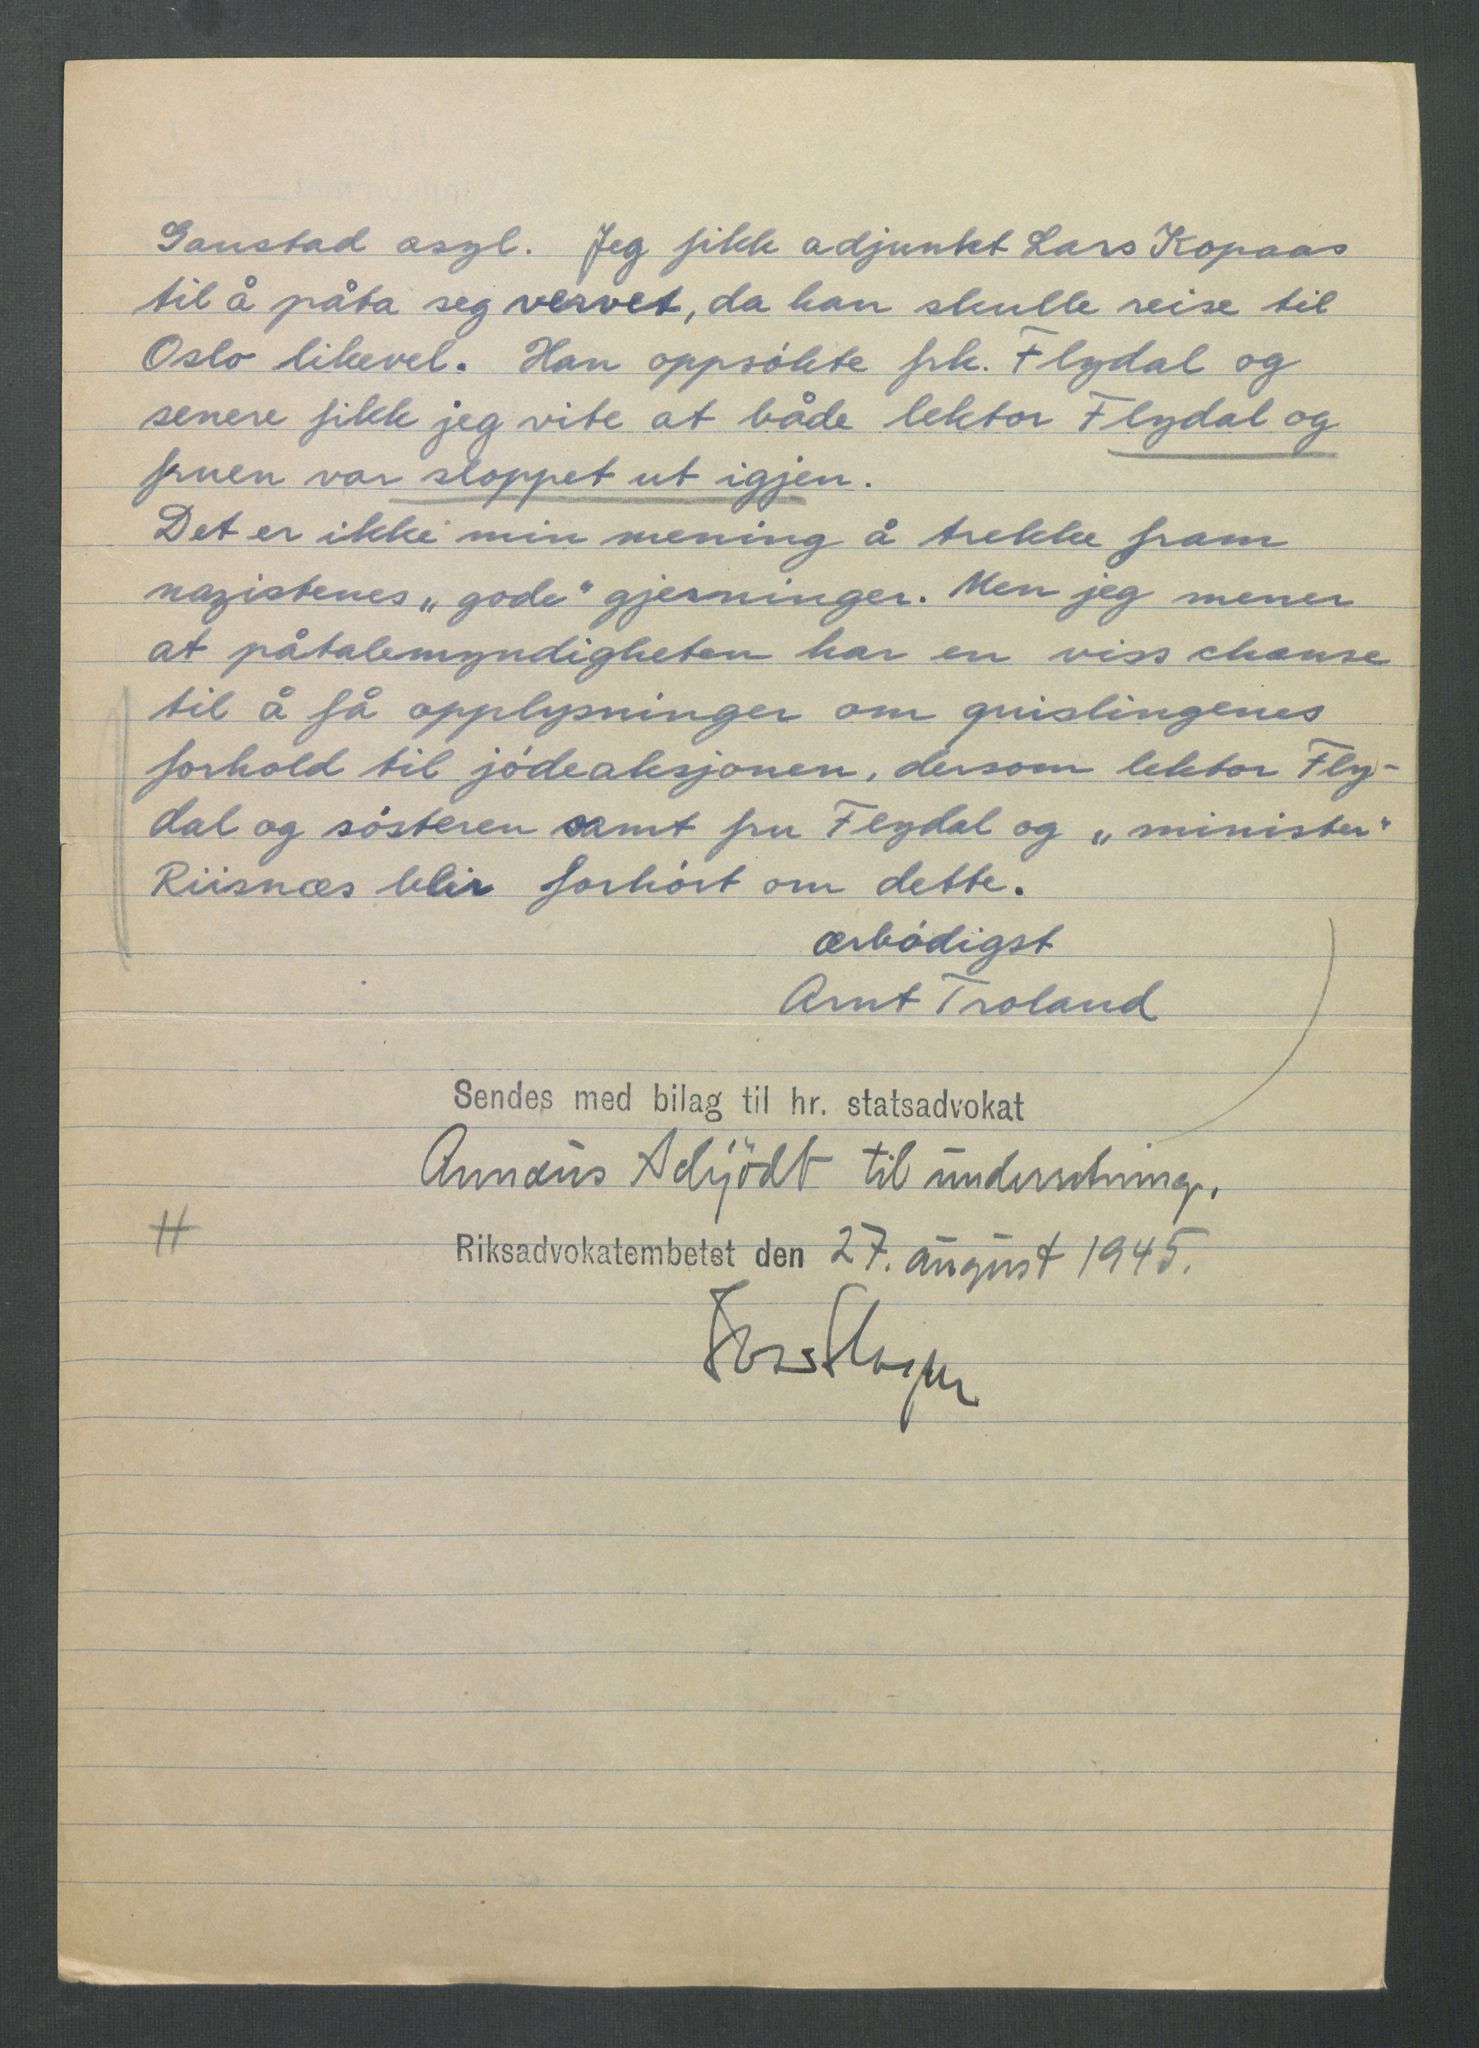 Gaustad asyl. Jeg fikk adjunkt Lars Kopaas
til å påta seg vervet, da han skulle reise til
Oslo likevel. Han oppsökte frk. Flydal og
senere fikk jeg vite at både lektor Flydal og
fruen var sloppet ut igjen.
Det er ikke min mening å trekke fram
nazistenes „gode" gjerninger. Men jeg mener
at påtalemyndigheten har en viss chanse
til å få opplysninger om quislingenes
forhold til jödeaksjonen, dersom lektor Fly-
dal og sösteren samt fru Flydal og „minister"
Riisnæs blir forhört om dette.
ærbödigst
Arnt Troland
Sendes med bilag til hr. statsadvokat
Annæus Schjödt til underretning.
Riksadvokatembetet den 27. august 1945.